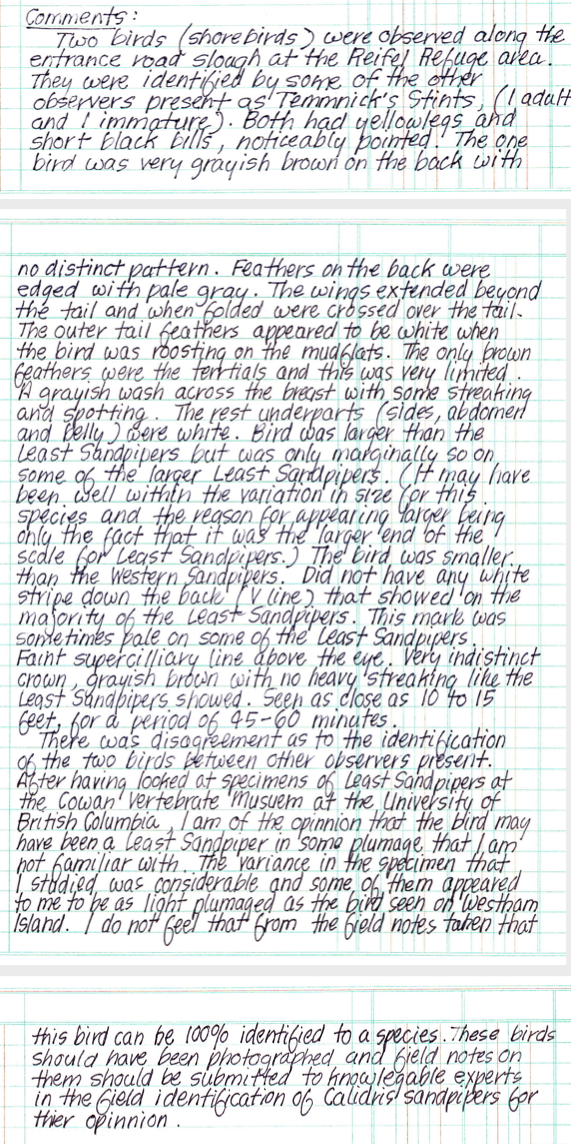 Comments:
Two birds (shorebirds) were observed along the
entrance road slough at the Reifel Refuge area.
They were identified by some of the other
observers present as Temmnick's Stints, (1 adult
and 1 immature). Both had yellowlegs and
short black bills, noticeably pointed. The one
bird was very grayish brown on the back with
no distinct pattern. Feathers on the back were
edged with pale gray. The wings extended beyond
the tail and when folded were crossed over the tail.
The outer tail feathers appeared to be white when
the bird was roosting on the mudflats. The only brown
feathers were the terrtials and this was very limited.
A grayish wash across the breast with some streaking
and spotting. The rest underparts (sides, abdomen
and belly) were white. Bird was larger than the
Least Sandpipers but was only marginally so on
some of the larger Least Sandpipers. (It may have
been well within the variation in size for this
species and the reason for appearing larger being
only the fact that it was the larger end of the
scale for Least Sandpipers.) The bird was smaller
than the Western Sandpipers. Did not have any white
stripe down the back (V line) that showed on the
majority of the Least Sandpipers. This mark was
sometimes pale on some of the Least Sandpipers.
Faint supercilliary line above the eye. Very indistinct
crown, grayish brown with no heavy streaking like the
Least Sandpipers showed. Seen as close as 10 to 15
feet, for a period of 45-60 minutes.
There was disagreement as to the identification
of the two birds between other observers present.
After having looked at specimens of Least Sandpipers at
the Cowan Vertebrate Musuem at the University of
British Columbia, I am of the opinnion that the bird may
have been a Least Sandpiper in some plumage that I am
not familiar with. The variance in the specimen that
I studied was considerable and some of them appeared
to me to be as light plumaged as the bird seen on Westham
Island. I do not feel that from the field notes taken that
this bird can be 100% identified to a species. These birds
should have been photographed and field notes on
them should be submitted to knowlegable experts
in the field identification of Calidris sandpipers for
thier opinnion.